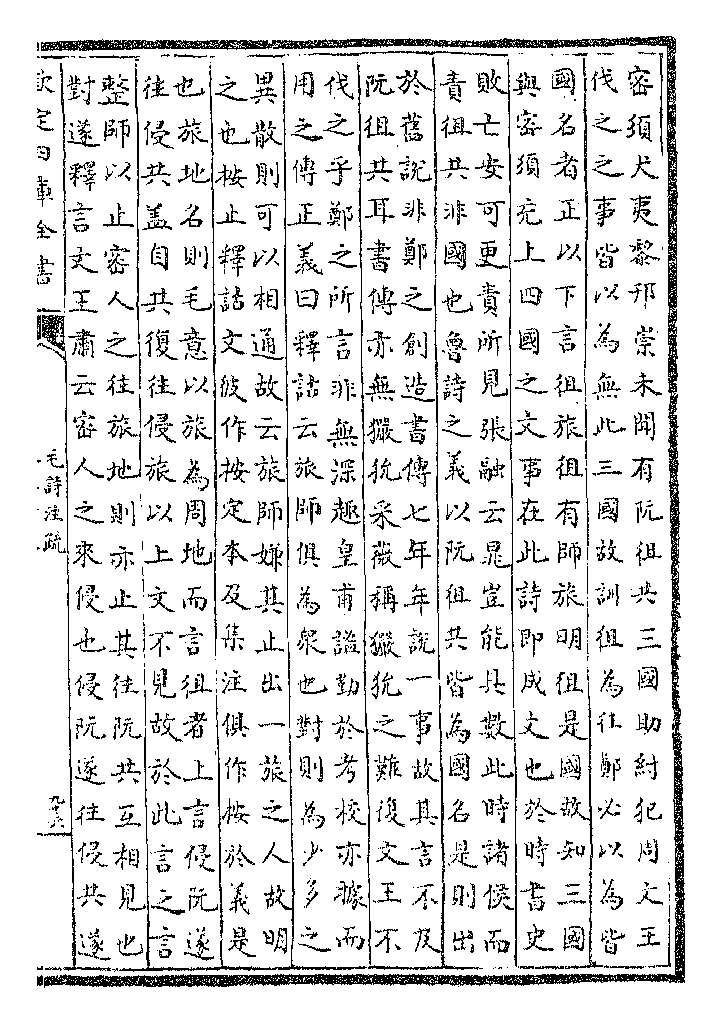 密須犬夷黎邘崇未聞有阮徂共三國助紂犯周文王
伐之之事皆以為無此三國故訓徂為往鄭必以為皆
國名者正以下言徂旅徂有師旅明徂是國故知三國
與密須充上四國之文事在此詩即成文也於時書史
敗亡安可更責所見張融云鼂豈能具數此時諸侯而
責徂共非國也魯詩之義以阮徂共皆為國名是則出
於舊說非鄭之創造書傳七年年說一事故其言不及
阮徂共耳書傳亦無玁狁采薇稱玁狁之難復文王不
伐之乎鄭之所言非無深趣皇甫謐勤於考校亦據而
用之傳正義曰釋詁云旅師俱為衆也對則為少多之
異散則可以相通故云旅師嫌其止出一旅之人故明
之也按止釋詁文彼作按定本及集注俱作按於義是
也旅地名則毛意以旅為周地而言徂者上言侵阮遂
往侵共蓋自共復往侵旅以上文不見故於此言之言
整師以止密人之往旅地則亦止其往阮共互相見也
對遂釋言文王肅云密人之來侵也侵阮遂往侵共遂
欽定四庫全書
毛詩注疏